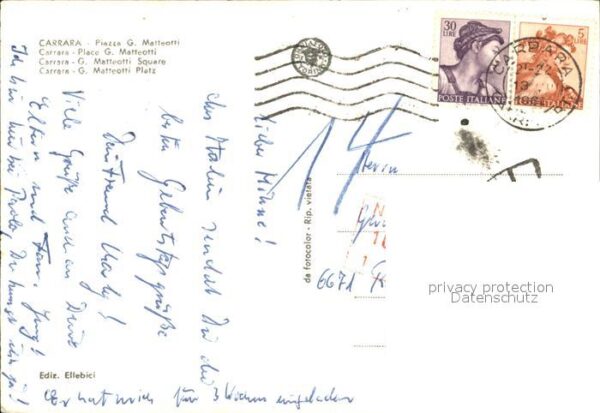 CARRARA - Piazza G. Matteotti
Carrara - Place G. Matteotti
Carrara - G. Matteotti Square
Carrara - G. Matteotti Platz
30
LIRE
POSTE ITALIANE
5
LIRE
CARRARA
14
Lieber
Aus Italien sendet Dir die
besten Geburtstagsgrüße
Dein Freund
Viele Grüße auch an Deine
Eltern und Fam. Jung!
Ich bin hier bei Du kennst ihn ja!
Er hat mich für 3 Wochen eingeladen
Herrn
6671
da fotocolor - Rip. vietata
Ediz. Ellebici
privacy protection
Datenschutz